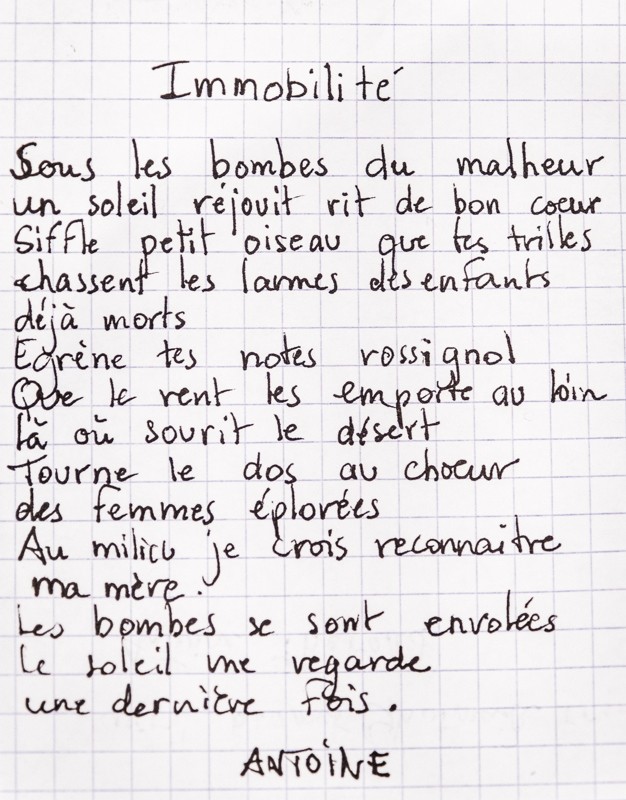 Immobilité
Sous les bombes du malheur
un soleil réjouit rit de bon coeur
Siffle petit oiseau que tes trilles
chassent les larmes des enfants
déjà morts
Egrène tes notes rossignol
Que le vent les emporte au loin
là où sourit le désert
Tourne le dos au choeur
des femmes éplorées
Au milieu je crois reconnaitre
ma mère.
Les bombes se sont envolées
Le soleil me regarde
une dernière fois.
ANTOINE